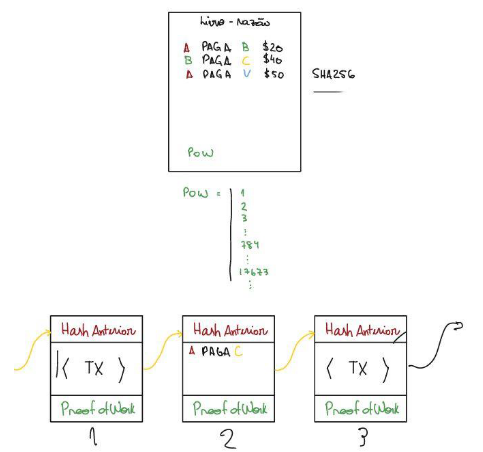 Livro-Razão
A PAGA B $20
B PAGA C $40
A PAGA V $50
SHA256
PoW
PoW = 1
2
3
⋮
784
⋮
17673
⋮
Hash Anterior
< TX >
Proof of Work
1
Hash Anterior
A PAGA C
Proof of Work
2
Hash Anterior
< TX >
Proof of Work
3